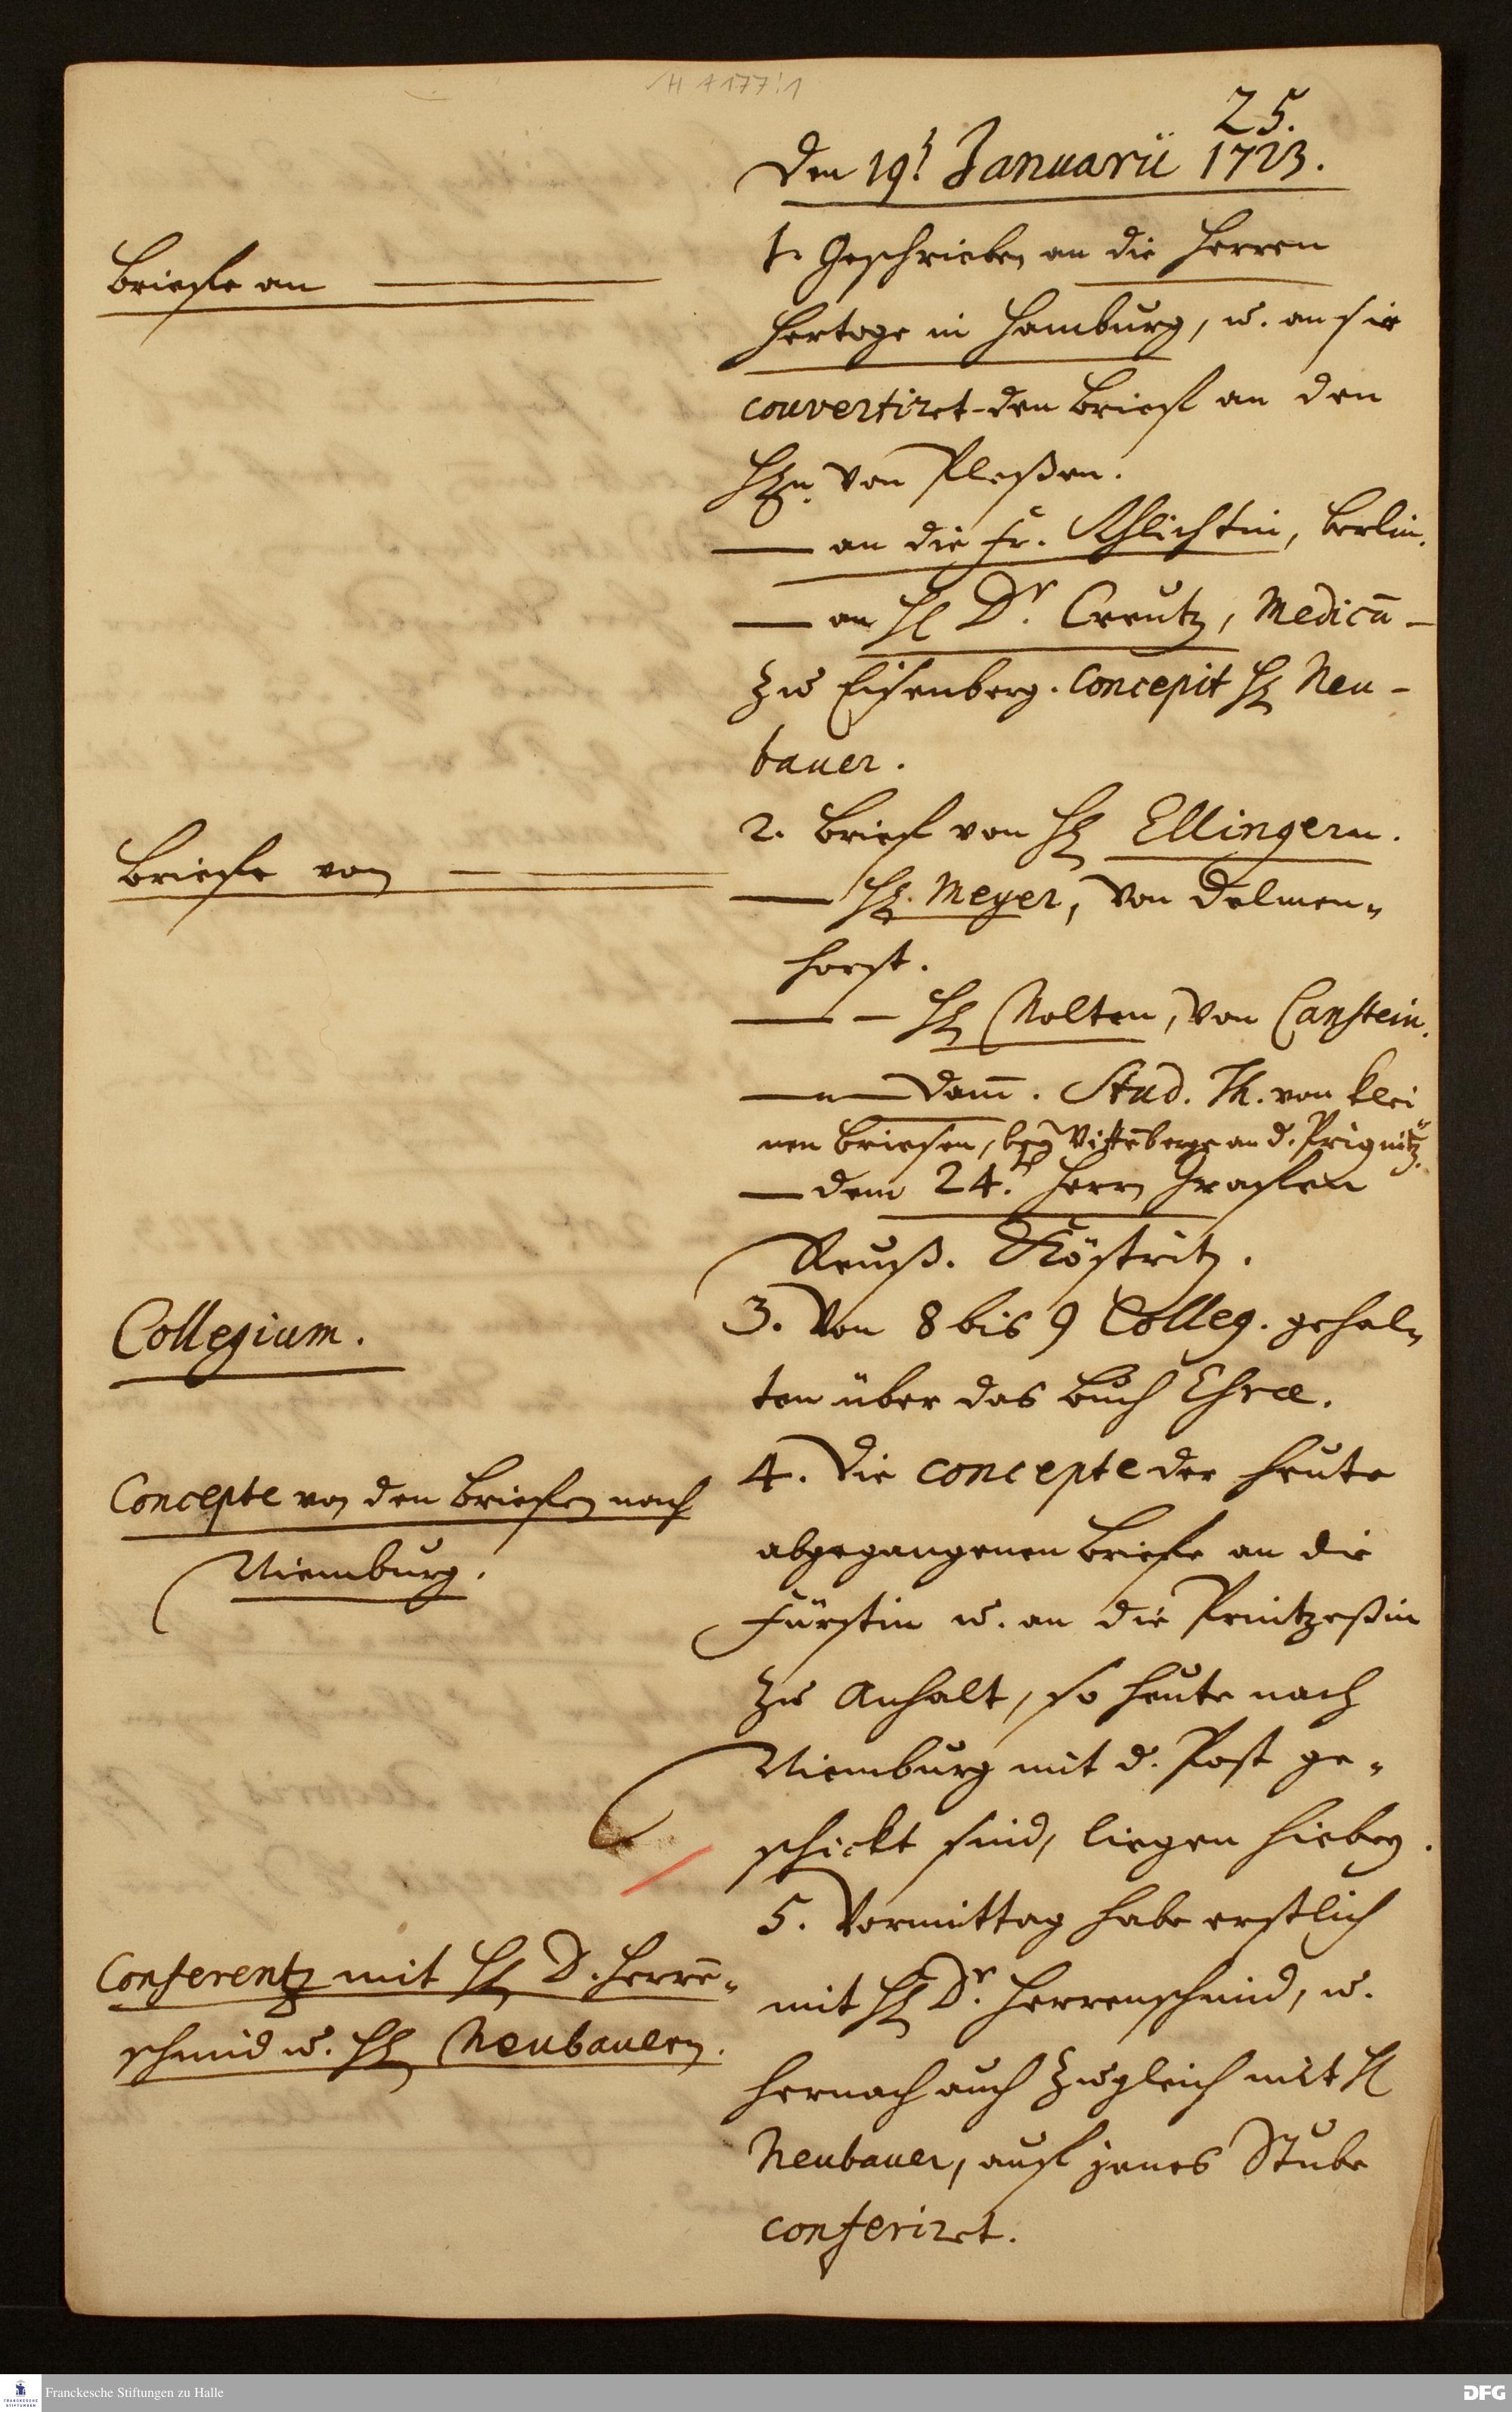 H A 177:1
25.
Den 19t Januarii 1723.
Briefe an
1. Geschrieben an die Herren
Hertoge in Hamburg, u. an sie
couvertiret den Brief an den
Hn. von Pleßen.
— an die Fr. Schlichtin, Berlin.
— an H Dr. Creutz, Medicū
zu Eisenberg. Concepit H Neu-
bauer.
Briefe von
2. Brief von H Ellingern.
— H. Meyer, von Delmen-
horst.
— — H Nolten, von Canstein.
— — Dam̄. Stud. Th. von klei
nen Briesen, bey Wittēberge an d. Prignitz.
— dem 24. Herrn Graffen
Reuß. Köstritz.
Collegium.
3. Von 8 bis 9 Colleg. gehal-
ten über das Buch Esræ.
Concepte von den Briefen nach
Niemburg.
4. Die concepte der heute
abgegangenen Briefe an die
Fürstin u. an die Printzeßin
zu Anhalt, so heute nach
Niemburg mit d. Post ge-
schickt sind, liegen hiebey.
Conferentz mit H D. Herrē-
schmid u. H Neubauern.
5. Vormittag habe erstlich
mit H Dr. Herrenschmid, u.
hernach auch zugleich mit H
Neubauer, auf jenes Stube
conferiret.
Franckesche Stiftungen zu Halle
DFG